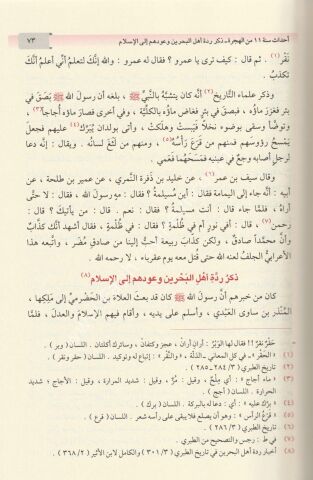 أحداث سنة ١١ من الهجرة ـ ذكر ردة أهل البحرين وعودهم إلى الإسلام
٧٣
نَقْر(١). ثم قال: كيف ترى يا عمرو؟ فقال له عمرو: والله إنَّكَ لتعلمُ أنِّي أعلمُ أنَّكَ
تكذبُ.
وذكر علماء التاريخ(٢) أنَّه كان يتشبَّه بالنبيِّ ﷺ، بلغه أن رسول الله ﷺ بَصَق في
بئر فغَزر ماؤه، فبصق في بئرٍ فغاض ماؤه بالكلِّيَّة، وفي أخرى فصار ماؤه أجاجاً(٣)،
وتوضَّأ وسقى بوضوئه نخلاً فيَبِسَتْ وهلَكتْ، وأتى بولدان يُبَرِّك(٤) عليهم فجعل
يَمسحُ رؤوسهم فمنهم من قَرِعَ رأسُه(٥)، ومنهم من لَثغَ لسانُه. ويقال: إنَّه دعا
لرجلٍ أصابه وجعٌ في عينيه فمَسَحَهُما فَعَمي.
وقال سيف بن عمر(٦)، عن خليد بن ذَفَرة النَّمري، عن عمير بن طلحة، عن
أبيه: أنَّه جاء إلى اليمامة فقال: أين مُسيلمةُ؟ فقال: مهْ رسول الله، فقال: لا حتَّى
أراه، فلمَّا جاء قال: أنت مسيلمة؟ فقال: نعم. قال: من يأتيكَ؟ قال:
رحمن(٧)، قال: أفي نورٍ أم في ظُلْمةٍ؟ فقال: في ظُلْمةٍ، فقال أشهد أنَّك كذَّابٌ
وأنَّ محمَّداً صادقٌ، ولكن كذَّاب ربيعة أحبُّ إلينا من صادقِ مُضَر، واتَّبعه هذا
الأعرابيُّ الجِلْفُ لعنه الله حتى قُتل معه يوم عقرباء، لا رحمه الله.
ذكرُ رِدَّةِ أهلِ البَحْرينِ وعودِهم إلى الإسلامِ(٨)
كان من خبرهم أن رسول الله ﷺ كان قد بعث العلاء بن الحَضْرميِّ إلى مَلِكها،
المُنْذر بن ساوى العَبْدي، وأسلم على يديه، وأقام فيهم الإسلام والعدل، فلمَّا
(١) «الحَقْر»: في كل المعاني: الذلّة، «والنَّقْر»: إتباع له وتوكيد. اللسان (حقر ونقر).
(٢) تاريخ الطبري (٣/ ٢٨٤ ـ ٢٨٥).
(٣) «ماء أجاج»: أي مِلْحٌ، وقيل: مرٌّ، وقيل: شديد المرارة، وقيل: الأجاج: شديد
الحرارة. اللسان (أجج).
(٤) «برَّك عليه»: أي: دعا له بالبركة. اللسان (برك).
(٥) «قَرَعُ الرأس»: وهو أن يصلع فلا يبقى على رأسه شعر. اللسان (قرع).
(٦) تاريخ الطبري (٣/ ٢٨٦).
(٧) في ط: رجس والتصحيح من الطبري.
(٨) أخبار ردة أهل البحرين في تاريخ الطبري (٣/ ٣٠١) والكامل لابن الأثير (٢/ ٣٦٨).